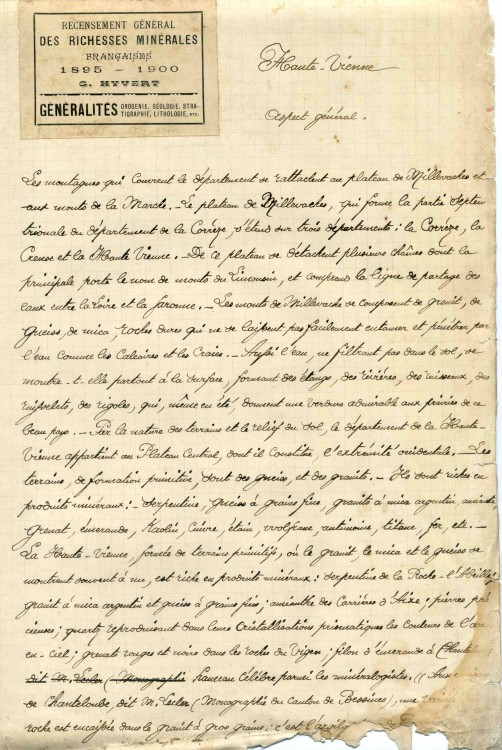 RECENSEMENT GÉNÉRAL
DES RICHESSES MINÉRALES
FRANÇAISES
1895 - 1900
G. HYVERT
GÉNÉRALITÉS OROGENIE, GÉOLOGIE, STRA-
TIGRAPHIE, LITHOLOGIE, etc.
Haute-Vienne
Aspect général.
Les montagnes qui couvrent le département se rattachent au plateau de Millevaches et
aux monts de la Marche. - Le plateau de Millevaches, qui forme la partie septen
trionale du département de la Corrèze, s'étend sur trois départements : la Corrèze, la
Creuse et la Haute Vienne. - De ce plateau se détachent plusieurs chaînes dont la
principale porte le nom de monts du Limousin, et comprend la ligne de partage des
eaux entre la Loire et la Garonne. - Les monts de Millevache se composent de granit, de
Gneiss, de mica, roches dures qui ne se laissent pas facilement entamer et pénétrer par
l'eau comme les Calcaires et les Craies. - Aussi l'eau, ne filtrant pas dans le sol, se
montre-t-elle partout à la surface, formant des étangs, des rivières, des ruisseaux, des
ruisselets, des rigoles, qui, même en été, donnent une verdure admirable aux prairies de ce
beau pays. - Par la nature des terrains et le relief du sol, le département de la Haute-
Vienne appartient au Plateau Central, dont il constitue l'extrémité occidentale. - Les
terrains, de formation primitive, sont des gneiss, et des granits. - Ils sont riches en
produits minéraux : - Serpentine, gneiss à grains fins, granit à mica argentin,
Grenat, émeraude, Kaolin, cuivre, étain, wolfram, antimoine, titane, fer, etc. -
La Haute-Vienne, formée de terrains primitifs, où le granit, le mica et le gneiss se
montrent souvent à nu, est riche en produits minéraux : serpentine de la Roche-l'Abeille
granit à mica argentin et gneiss à grains fins ; des Carrières d'Aixe ; pierres pré
cieuses ; quartz reproduisant dans leurs Cristallisations prismatiques les Couleurs de l'arc
en-ciel ; grenats rouges et noirs dans les roches du Vigen ; filon d'émeraude à
dit M. Lecler (Monographie hameau Célèbre parmi les minéralogistes.
de Chanteloube, dit M. Lecler (Monographie du canton de Bessines), une
roche est encaissée dans le granit à gros grains ; c'est